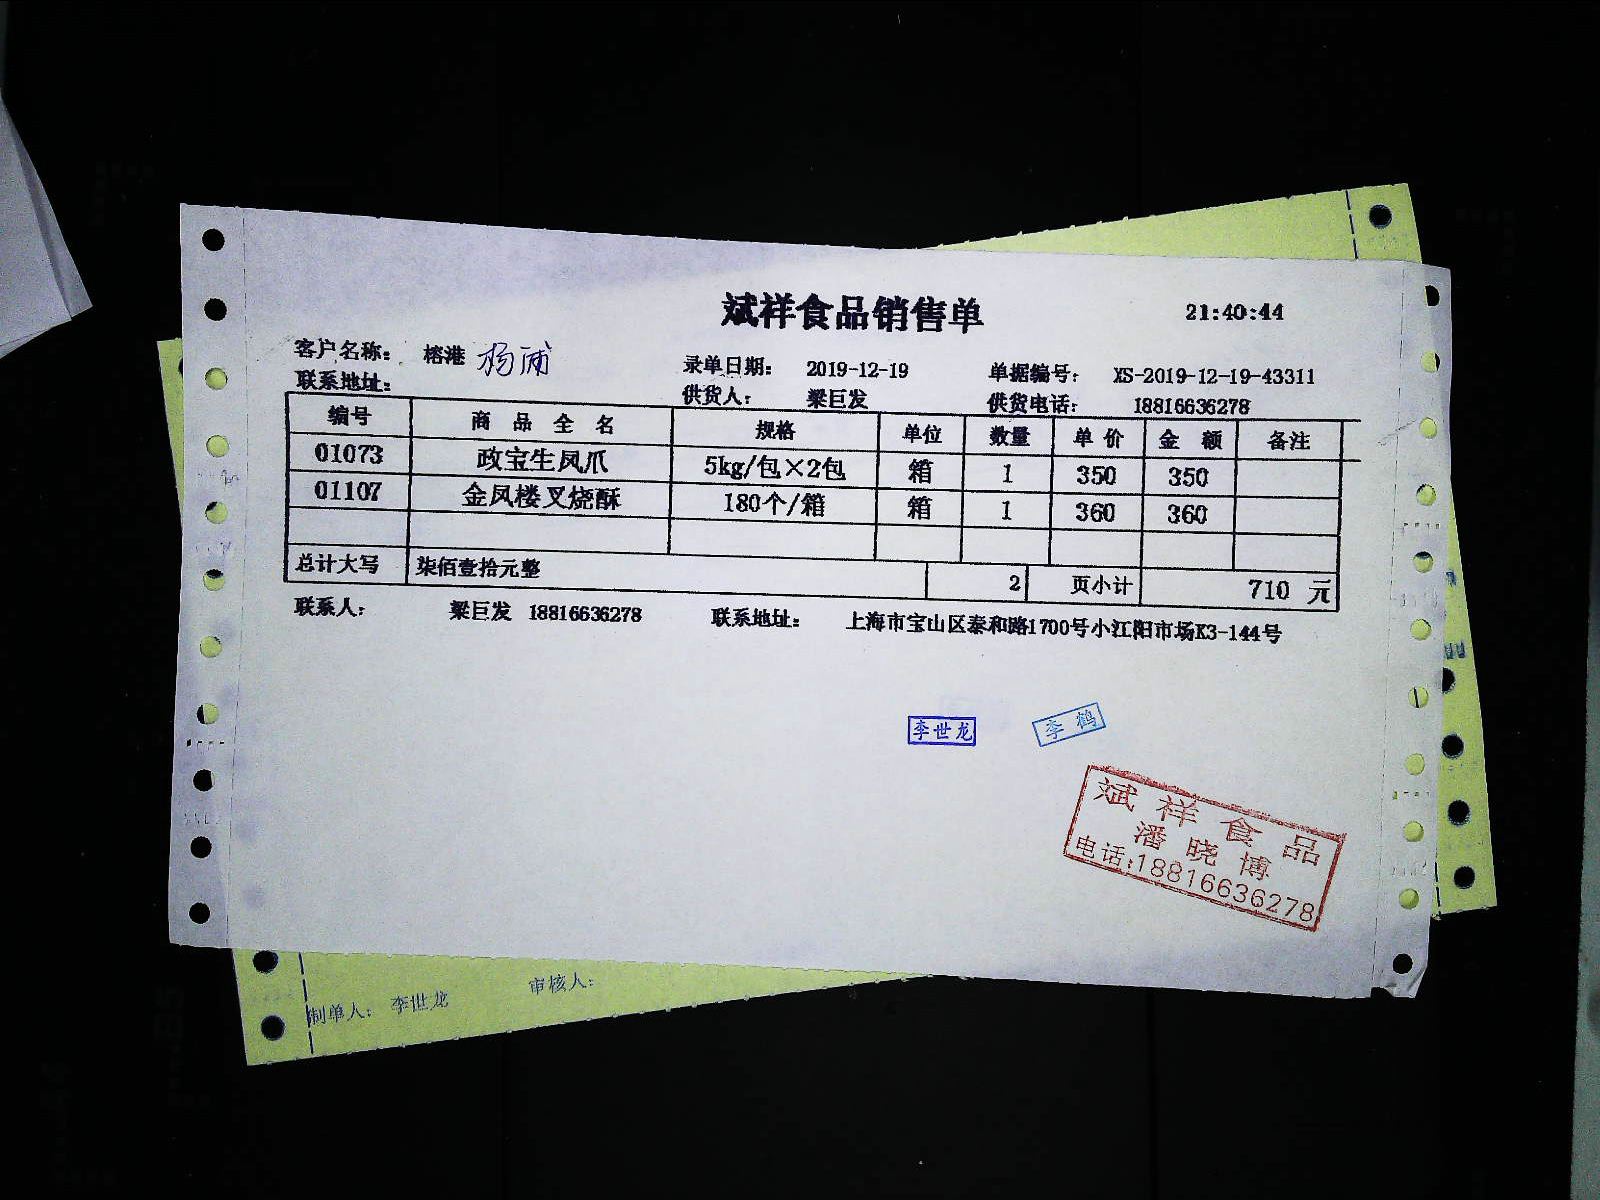 斌祥食品销售单 21:40:44
客户名称： 榕港 杨浦 录单日期： 2019-12-19 单据编号： XS-2019-12-19-43311
联系地址： 供货人： 梁巨发 供货电话： 18816636278
编号 商品全名 规格 单位 数量 单价 金额 备注
01073 政宝生凤爪 5kg/包×2包 箱 1 350 350
01107 金凤楼叉烧酥 180个/箱 箱 1 360 360
总计大写 柒佰壹拾元整 2 页小计 710 元
联系人： 梁巨发 18816636278 联系地址： 上海市宝山区泰和路1700号小江阳市场K3-144号
李世龙 李鹤
斌祥食品
潘晓博
电话:18816636278
制单人： 李世龙 审核人：